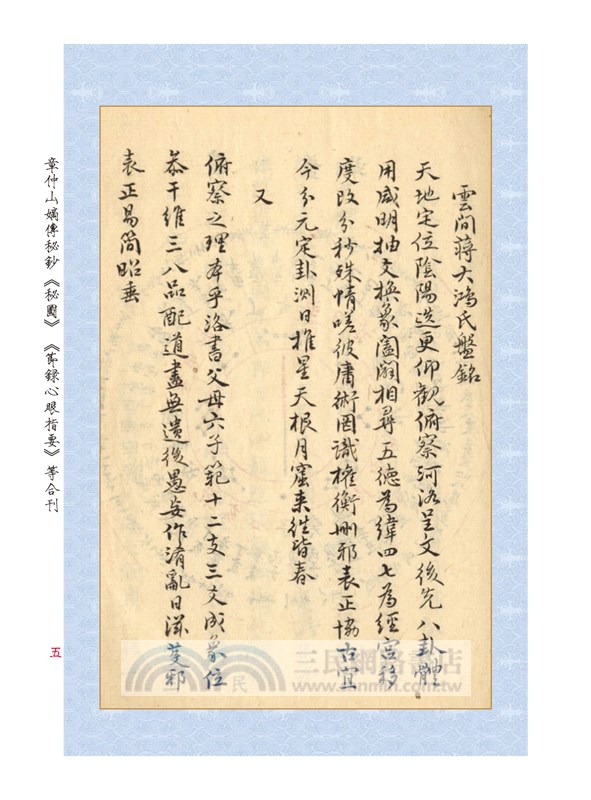 雲间蔣大鴻氏盤銘
天地定位陰陽迭更仰觀俯察河洛呈文後先八卦體
用咸明抽爻换象闔闢相尋五德為緯四七為經宫移
度改分秒殊情嗟彼庸術罔識權衡刪邪表正協古宜
今分元定卦測日推星天根月窟来往皆春
又
俯察之理本乎洛書父母六子範十二支三爻成象位
叅干維三八品配道盡無遺後愚妄作淆亂日滋芟邪
表正易簡昭垂
章仲山嫡傳秘鈔《秘圖》《節錄心眼指要》等合刊
五
三民網路書店
三民
www.sanmin.com.tw